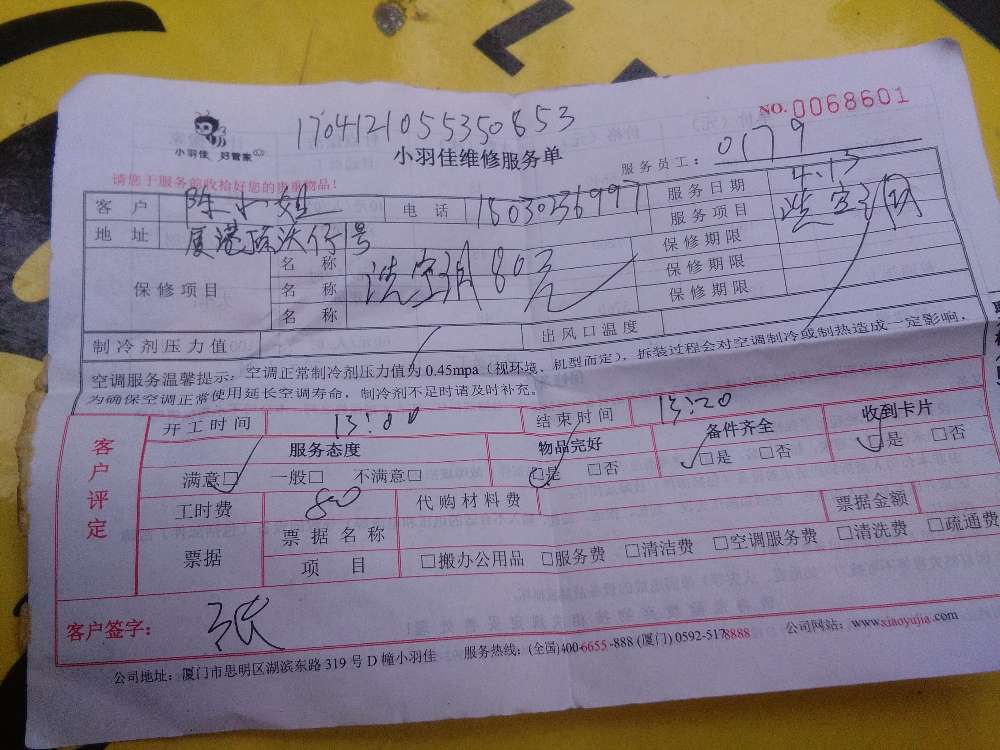 NO.0068601
170412105535​0853
小羽佳 好管家
小羽佳维修服务单
服务员工： 0179
请您于服务前收拾好您的贵重物品！
客 户 陈小姐 电 话 18030236997 服务日期 4.13
地 址 厦港 沃仔1号 服务项目 洗空调
保修项目 名 称 洗空调80元 保修期限
名 称 保修期限
名 称 保修期限
制冷剂压力值 出风口温度
空调服务温馨提示：空调正常制冷剂压力值为0.45mpa（视环境、机型而定），拆装过程会对空调制冷或制热造成一定影响，
为确保空调正常使用延长空调寿命，制冷剂不足时请及时补充。
客户评定
开工时间 13:00 结束时间 13:20
服务态度 物品完好 备件齐全 收到卡片
满意□ 一般□ 不满意□ □是 □否 □是 □否 □是 □否
工时费 80 代购材料费
票据 票据名称 票据金额
项 目 □搬办公用品 □服务费 □清洁费 □空调服务费 □清洗费 □疏通费
客户签字： 张
公司地址：厦门市思明区湖滨东路319号D幢小羽佳 服务热线：(全国)400-6655-888 (厦门) 0592-5178888 公司网站：www.xiaoyujia.com